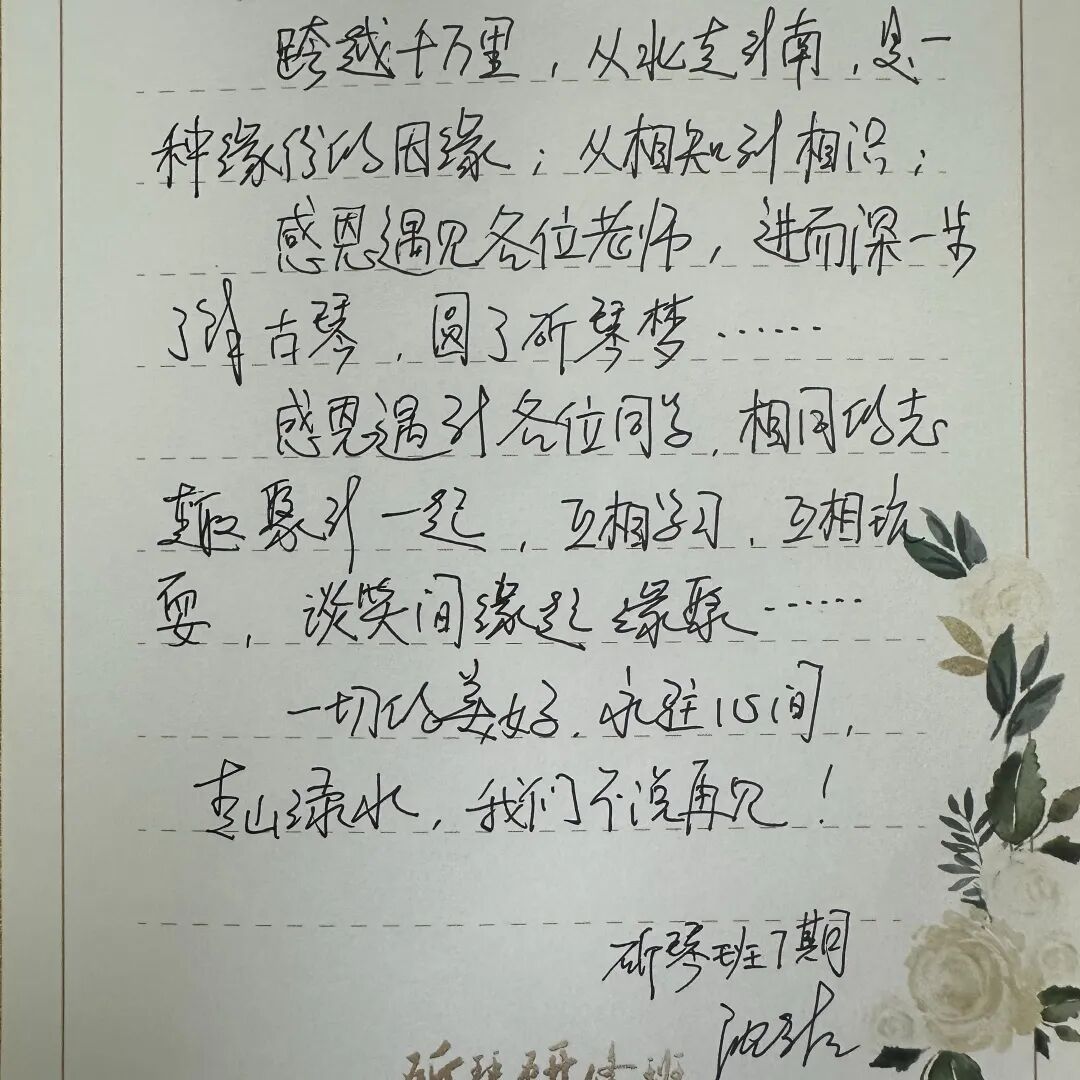 跨越千万里，从北走到南，是一
种缘份的因缘；从相知到相识；
感恩遇见各位老师，进而深一步
了解古琴，圆了斫琴梦……
感恩遇到各位同学，相同的志
趣聚到一起，互相学习，互相玩
耍，谈笑间缘起缘聚……
一切的美好，永驻心间，
青山绿水，我们不说再见！
斫琴班7期
斫琴研修班